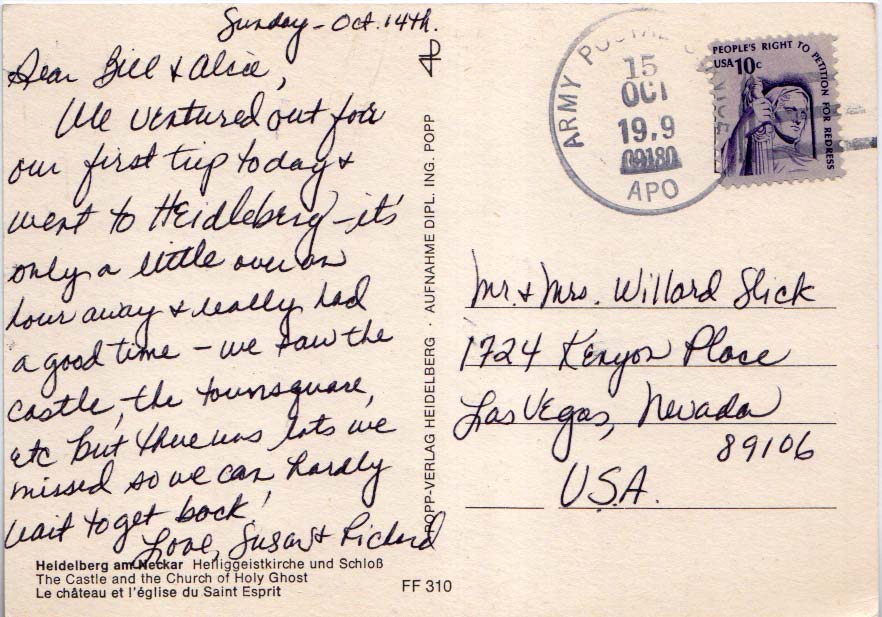 Sunday - Oct. 14th.
Dear Bill & Alice,
We ventured out for
our first trip today &
went to Heidleberg - it's
only a little over an
hour away & really had
a good time - we saw the
castle, the townsquare,
etc but there was lots we
missed so we can hardly
wait to get back!
Love, Susan & Richard
Heidelberg am Neckar Heiliggeistkirche und Schloß
The Castle and the Church of Holy Ghost
Le château et l'église du Saint Esprit
FF 310
POPP-VERLAG HEIDELBERG · AUFNAHME DIPL. ING. POPP
ARMY POSTAL SERVICE
15
OCT
19 9
09180
APO
PEOPLE'S RIGHT TO PETITION FOR REDRESS
USA 10c
Mr. & Mrs. Willard Slick
1724 Kenyon Place
Las Vegas, Nevada
89106
U.S.A.